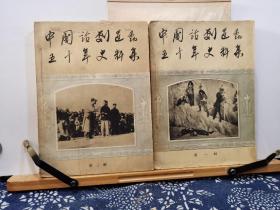 中国话剧运动
五十年史料集
第二辑
中国话剧运动
五十年史料集
第一辑